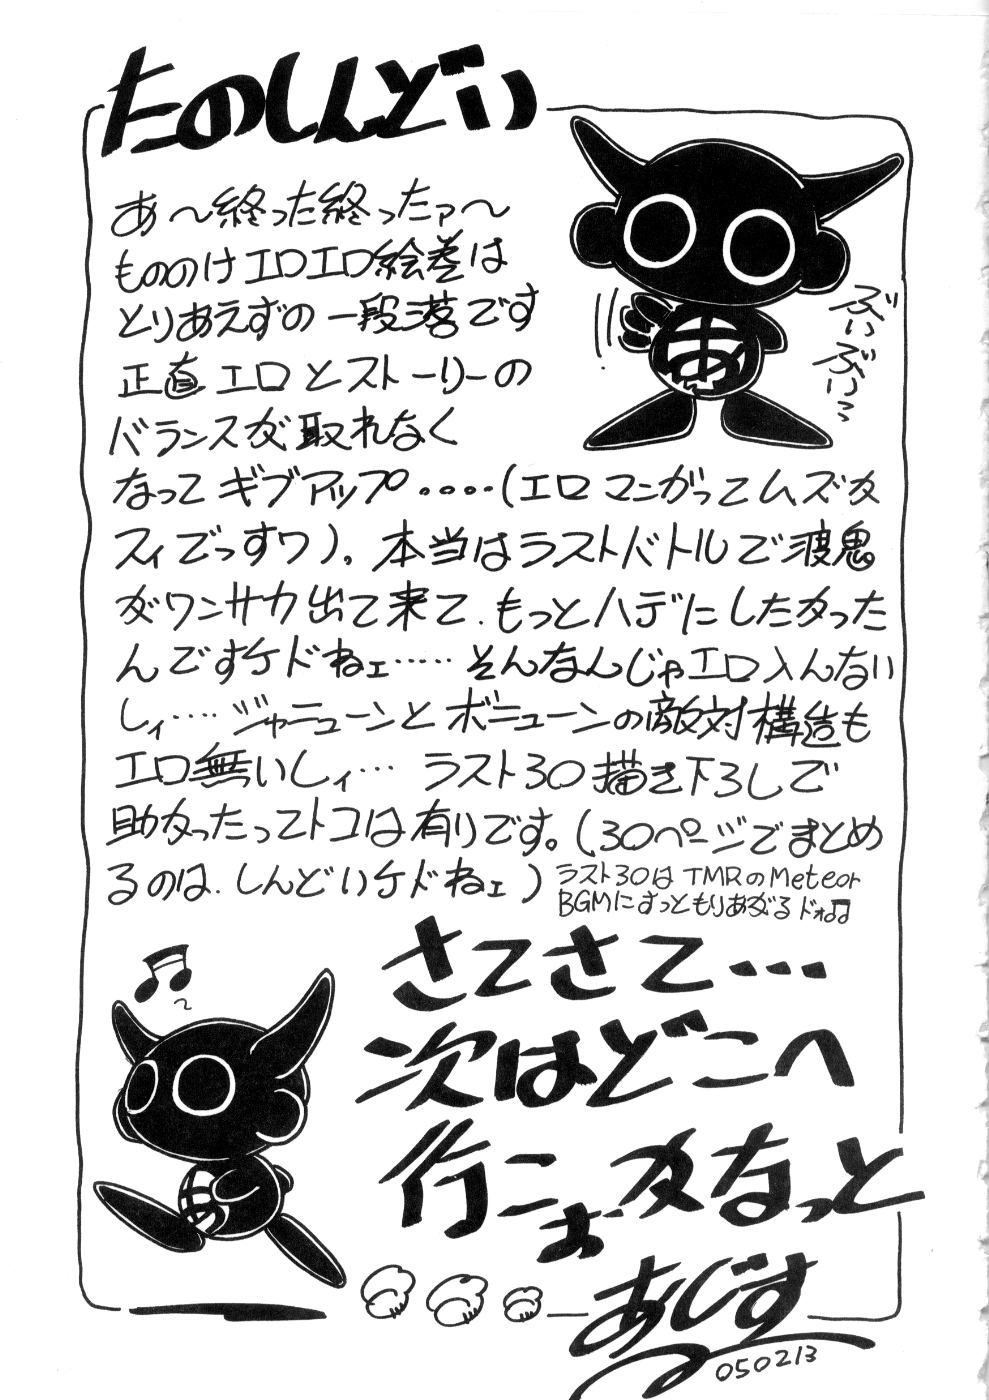 たのしんどい
あ～終った終ったァ～
もののけエロエロ絵巻は
とりあえずの一段落です
正直エロとストーリーの
バランスが取れなく
なってギブアップ・・・・(エロマンガってムズカ
スィでっすワ)。本当はラストバトルで渡鬼
がワンサカ出て来て、もっとハデにしたかった
んですケドねェ・・・・・そんなんじゃエロ入んない
しィ・・・・ジャニューンとボニューンの敵対構造も
エロ無いしィ・・・ラスト30描き下ろしで
助かったってトコは有りです。(30ページでまとめ
るのは、しんどいケドねェ)
ラスト30はTMRのMeteor
BGMにすっともりあがるドォ♫
ぶいぶいっ
あ
♫
あ
さてさて・・・
次はどこへ
行こぉかなっと
あじす
050213